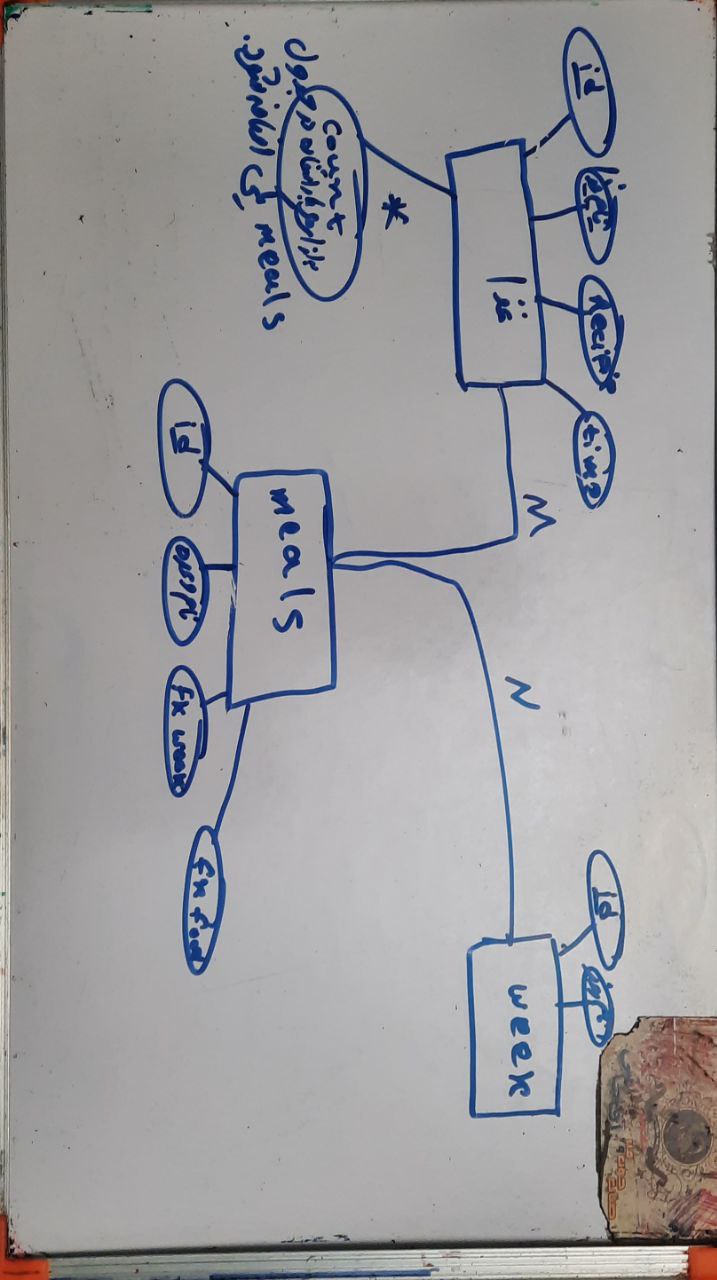 id
نام غذا
Recipie
time
id
نام روز
غذا
M
N
week
*
count
به ازای هر بار استفاده در جدول
meals یکی اضافه شود.
meals
id
نام وعده
fk week
fk food